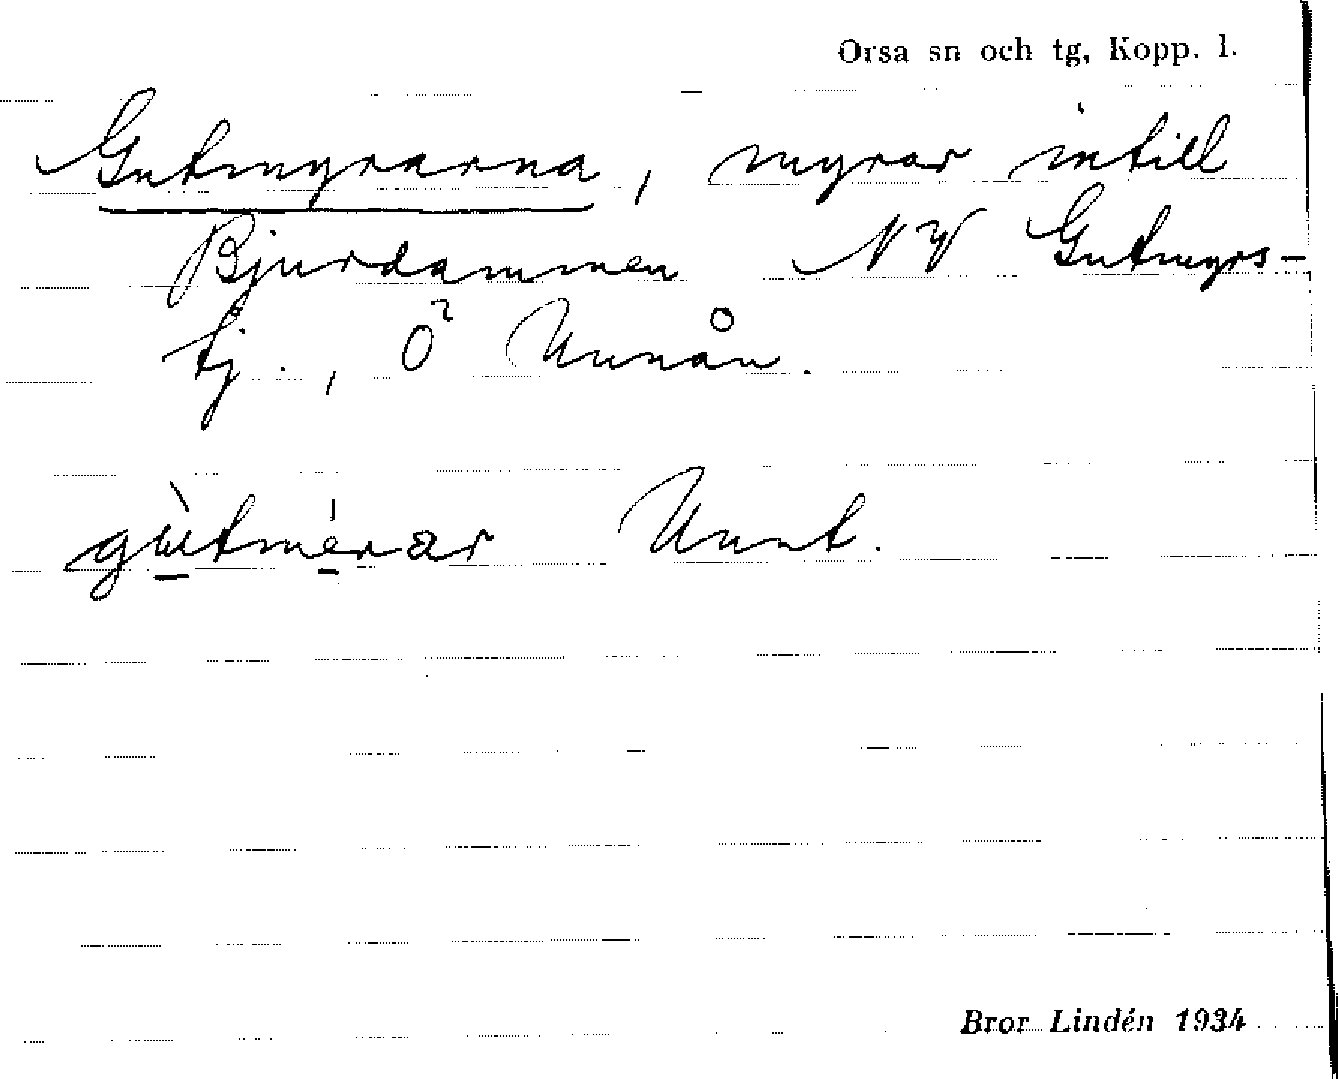 Orsa sn och tg, Kopp. l.
Gutmyrarna, myrar intill
Bjurdammen NV Gutmyrs-
tj., Ö Unnån.
gùtmérar Unnt.
Bror Lindén 1934